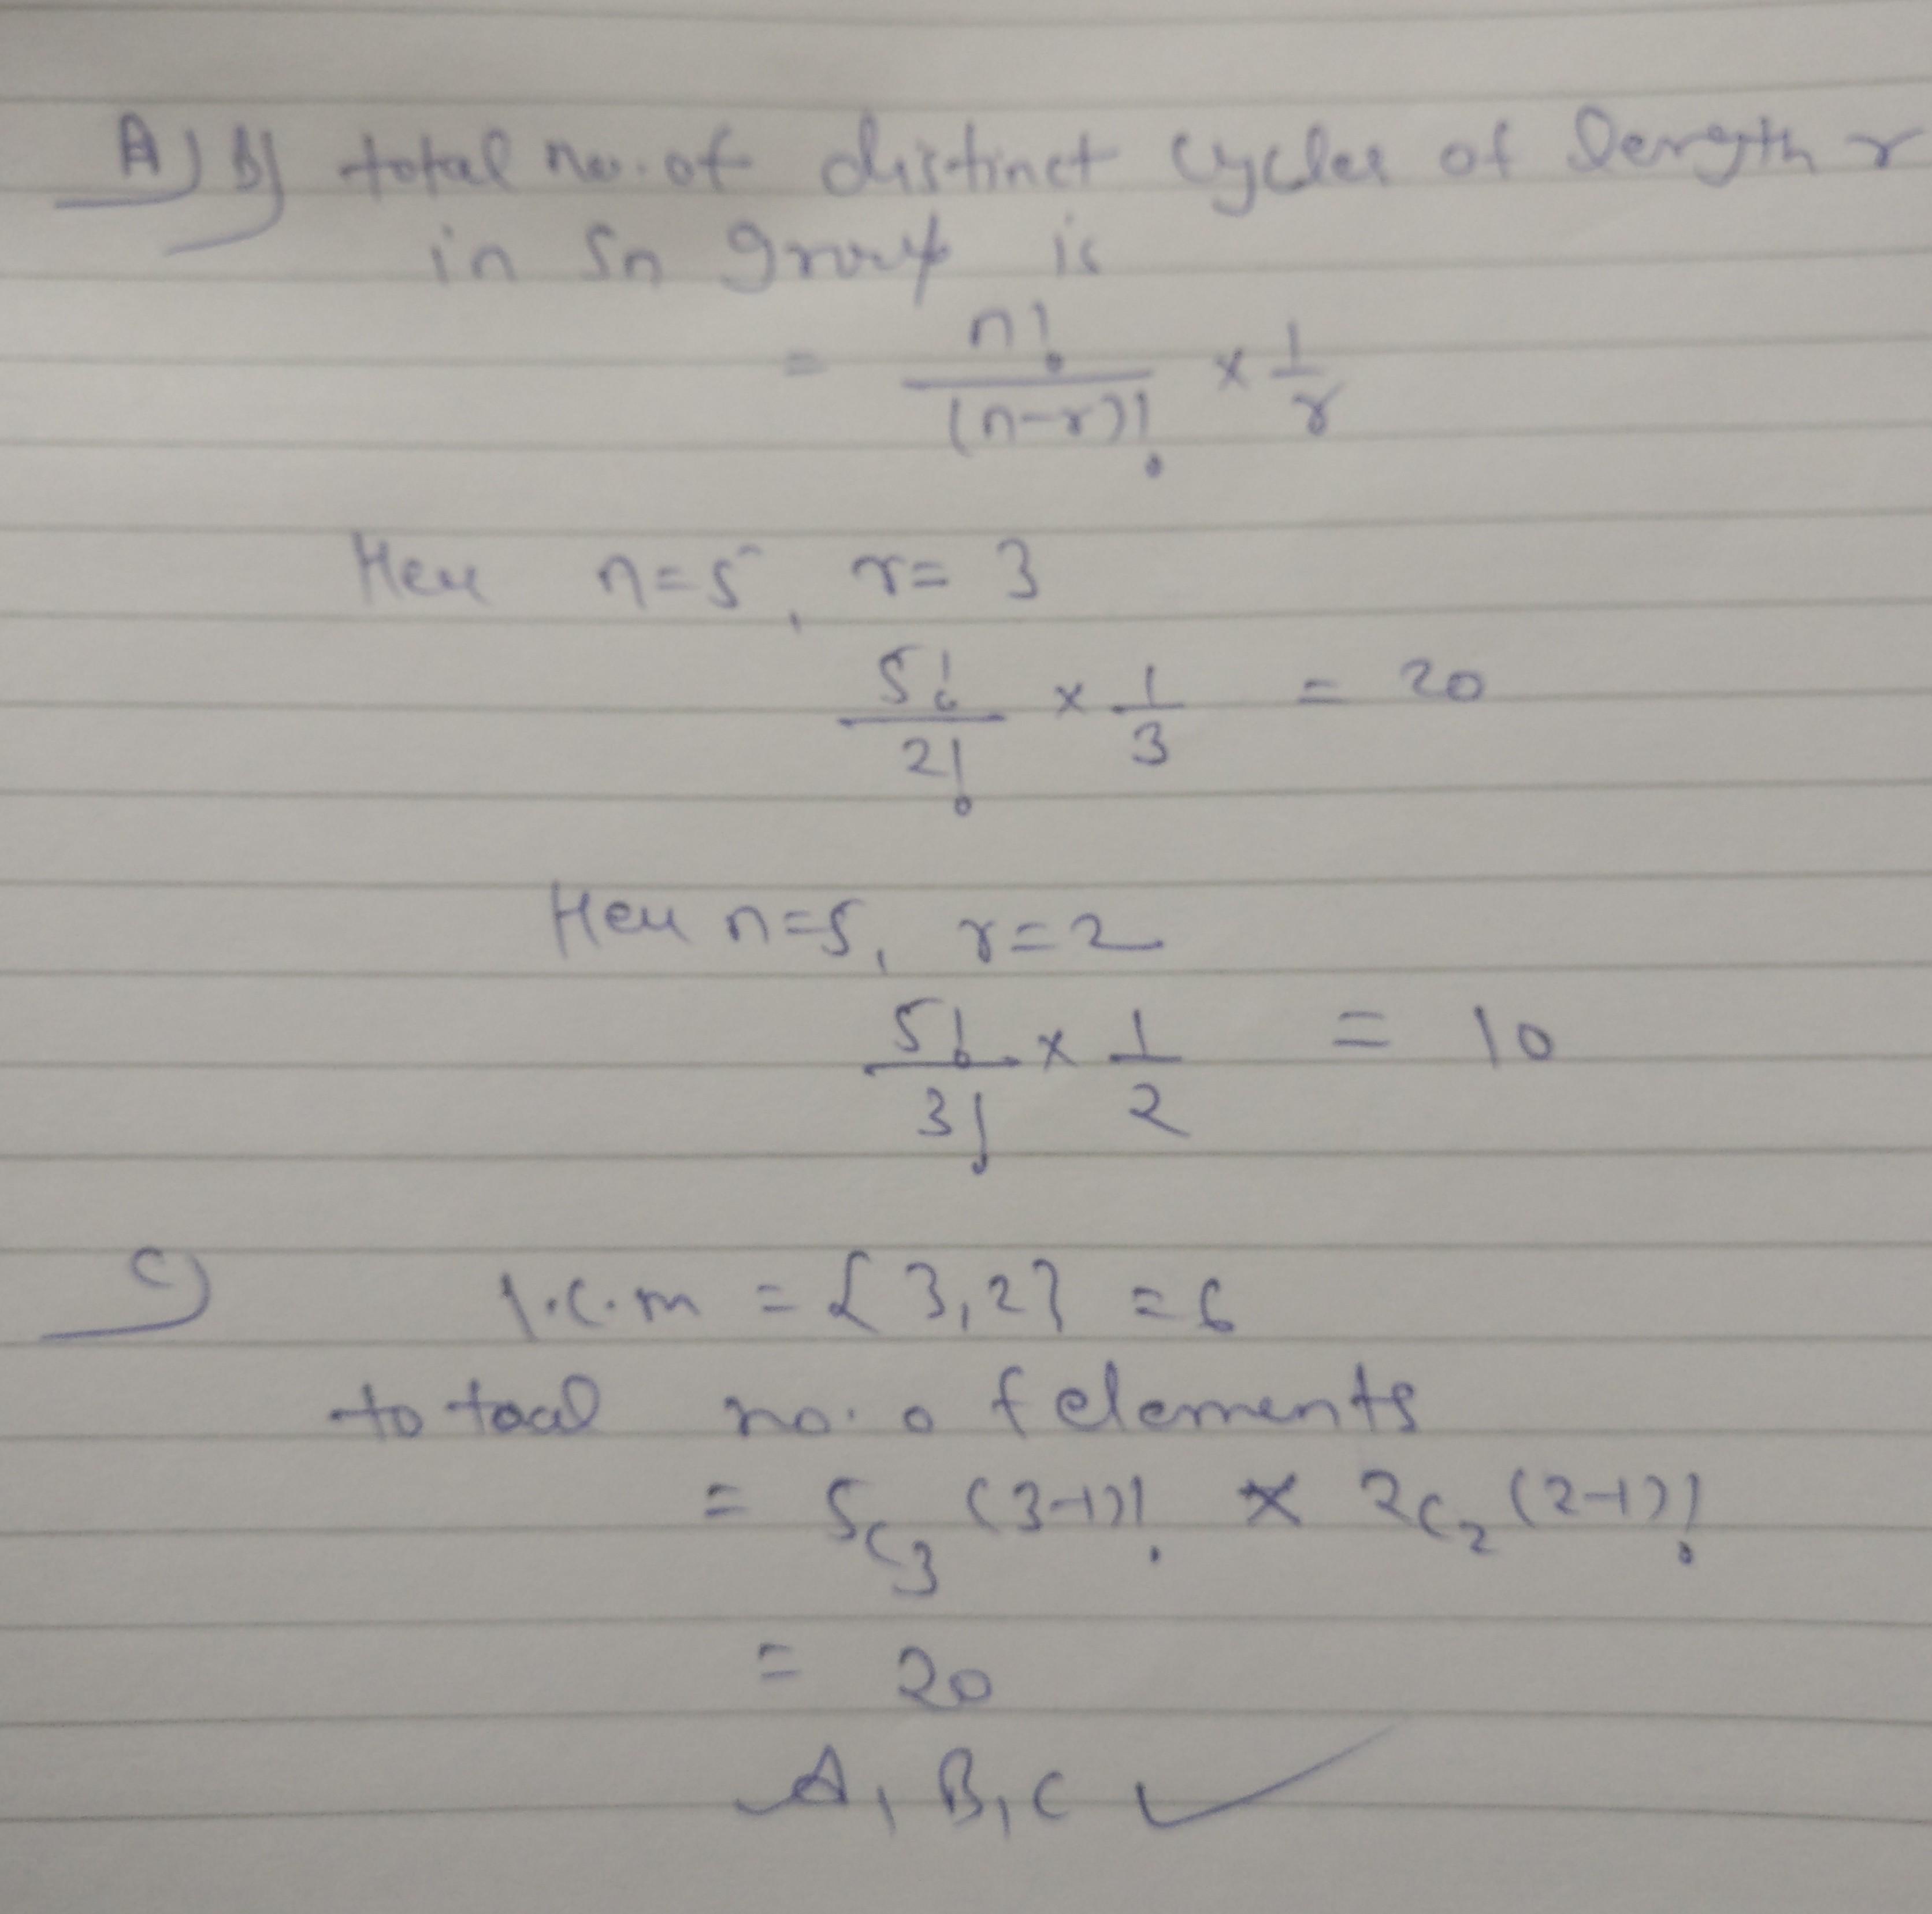 A) B) total no. of distinct cycles of length r
in Sn group is
= n!/(n-r)! × 1/r
Here n=5, r= 3
5!/2! × 1/3 = 20
Here n=5, r=2
5!/3! × 1/2 = 10
C) l.c.m = {3,2} = 6
to toal no. of elements
= 5c₃ (3-1)! × 2c₂ (2-1)!
= 20
A, B, C ✓